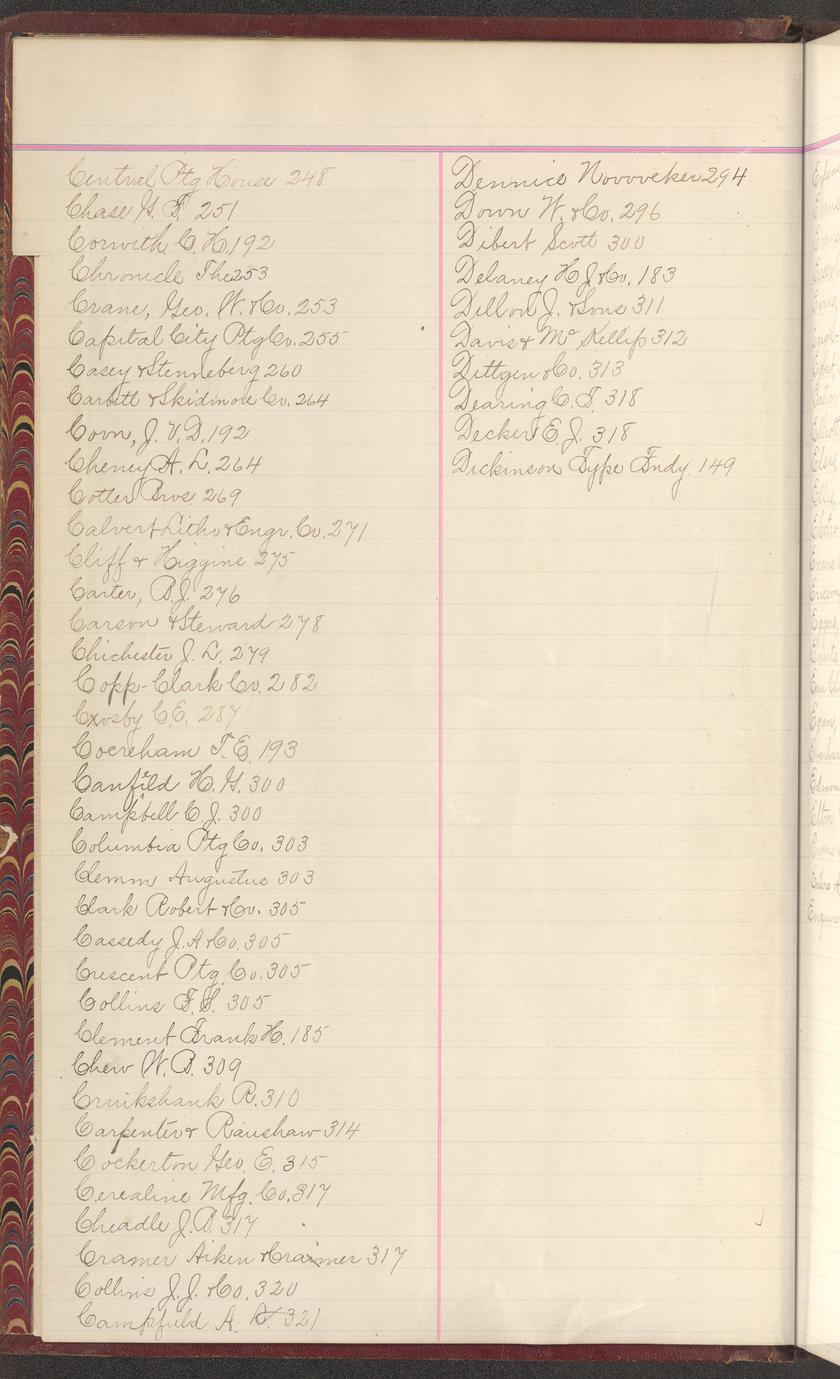 Central Ptg House 248
Chase G. F. 251
Corwith C. H. 192
Chronicle The 253
Crane, Geo. W. & Co. 253
Capital City Ptg Co. 255
Casey & Stenneberg 260
Carbitt & Skidmore Co. 264
Covn, J. V. D. 192
Cheney A. L. 264
Cotter Bros. 269
Calvert Litho & Engr. Co. 271
Cliff & Higgins 275
Carter, B. J. 276
Carson & Steward 278
Chichester J. L. 279
Copp-Clark Co. 282
Crosby C. E. 287
Cocreham T. E. 193
Canfild H. G. 300
Campbell C. J. 300
Columbia Ptg Co. 303
Clemm Augustus 303
Clark Robert & Co. 305
Cassedy J. A & Co. 305
Crescent Ptg. Co. 305
Collins F. S. 305
Clement Frank H. 185
Chew W. B. 309
Cruikshank R. 310
Carpenter & Raushaw 314
Cockerton Geo. E. 315
Cerealine Mfg. Co. 317
Cheadle J. B. 317
Cramer Aiken & Craimer 317
Collins J. J. & Co. 320
Campfield A. 321
Dennice 294
Down W. & Co. 296
Dibert Scott 300
Delaney H. J & Co. 183
Dillon J. & Sons 311
Davis & Mc Killip 312
Dittgen & Co. 313
Dearing C. T. 318
Decker E. J. 318
Dickinson Type Fndy. 149